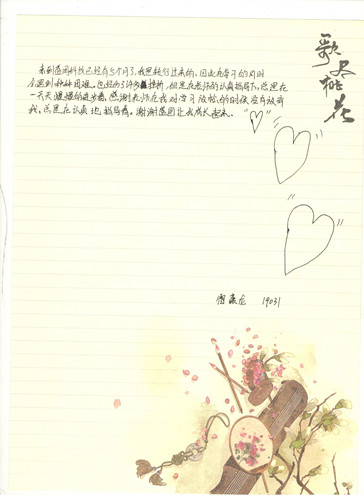 歌尽桃花
来到蓝网科技已经有5个月了,我是转行过来的,因此在学习的同时
会遇到种种困难,也经历了许多挫折,但是在老师的认真指导下,总是在
一天天慢慢的进步着,感谢老师在我对学习放松的时候没有放弃
我,总是在认真地指导着,谢谢蓝网让我成长起来。
雷 龙 19031